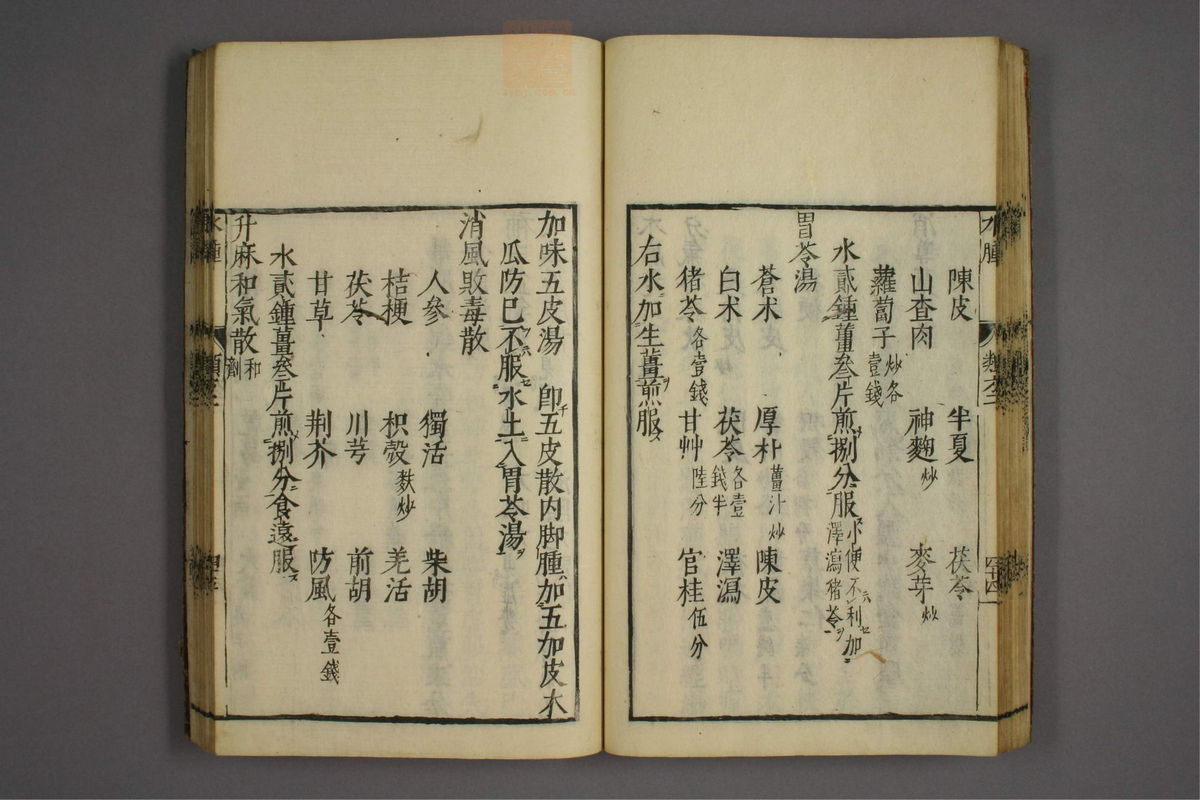 陳皮 半夏 茯苓
山查肉 神麴炒 麥芽炒
蘿蔔子炒各壹錢
水貳鍾薑叄片煎捌分服小便不利加澤瀉猪苓
胃苓湯
蒼朮 厚朴薑汁炒 陳皮
白朮 茯苓各壹錢半 澤瀉
猪苓各壹錢 甘艸陸分 官桂伍分
右水加生薑煎服
加味五皮湯 卽五皮散内脚腫加五加皮木
瓜防已不服水土入胃苓湯
消風敗毒散
人參 獨活 柴胡
桔梗 枳殼麩炒 羌活
茯苓 川芎 前胡
甘草 荆芥 防風各壹錢
水貳鍾薑叄片煎捌分食遠服
升麻和氣散和劑
水腫